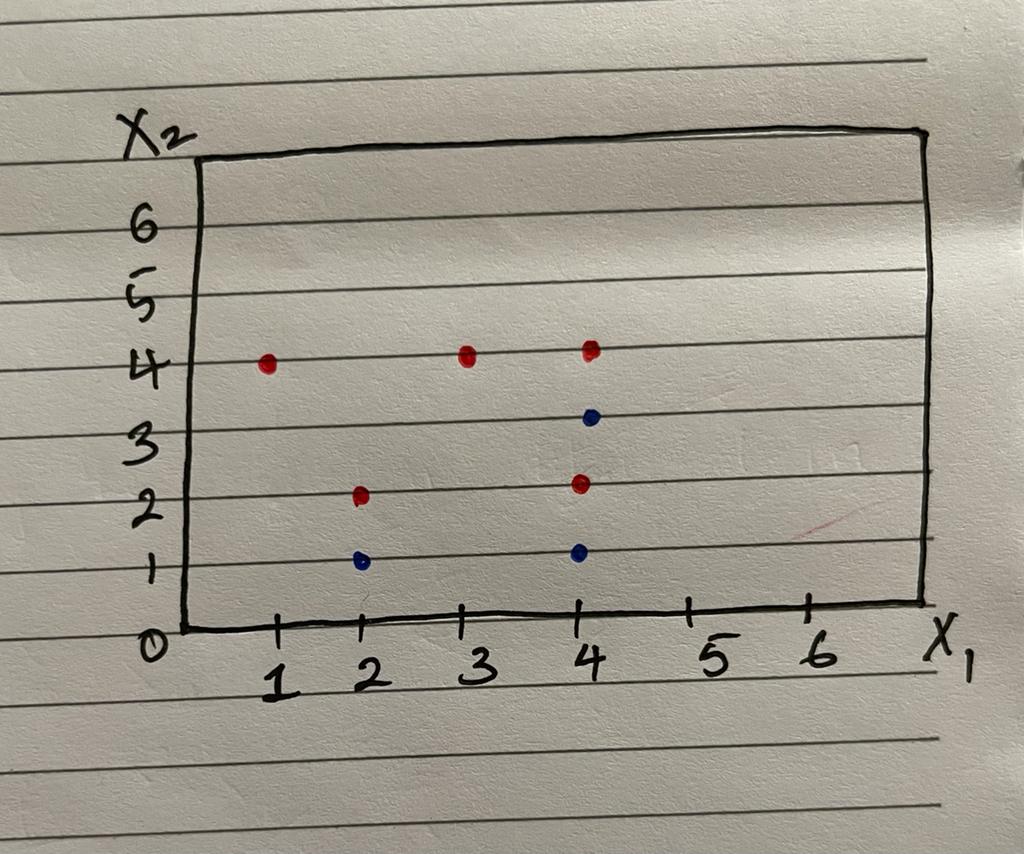 X2
6
5
4
3
2
1
0
1 2 3 4 5 6 X1